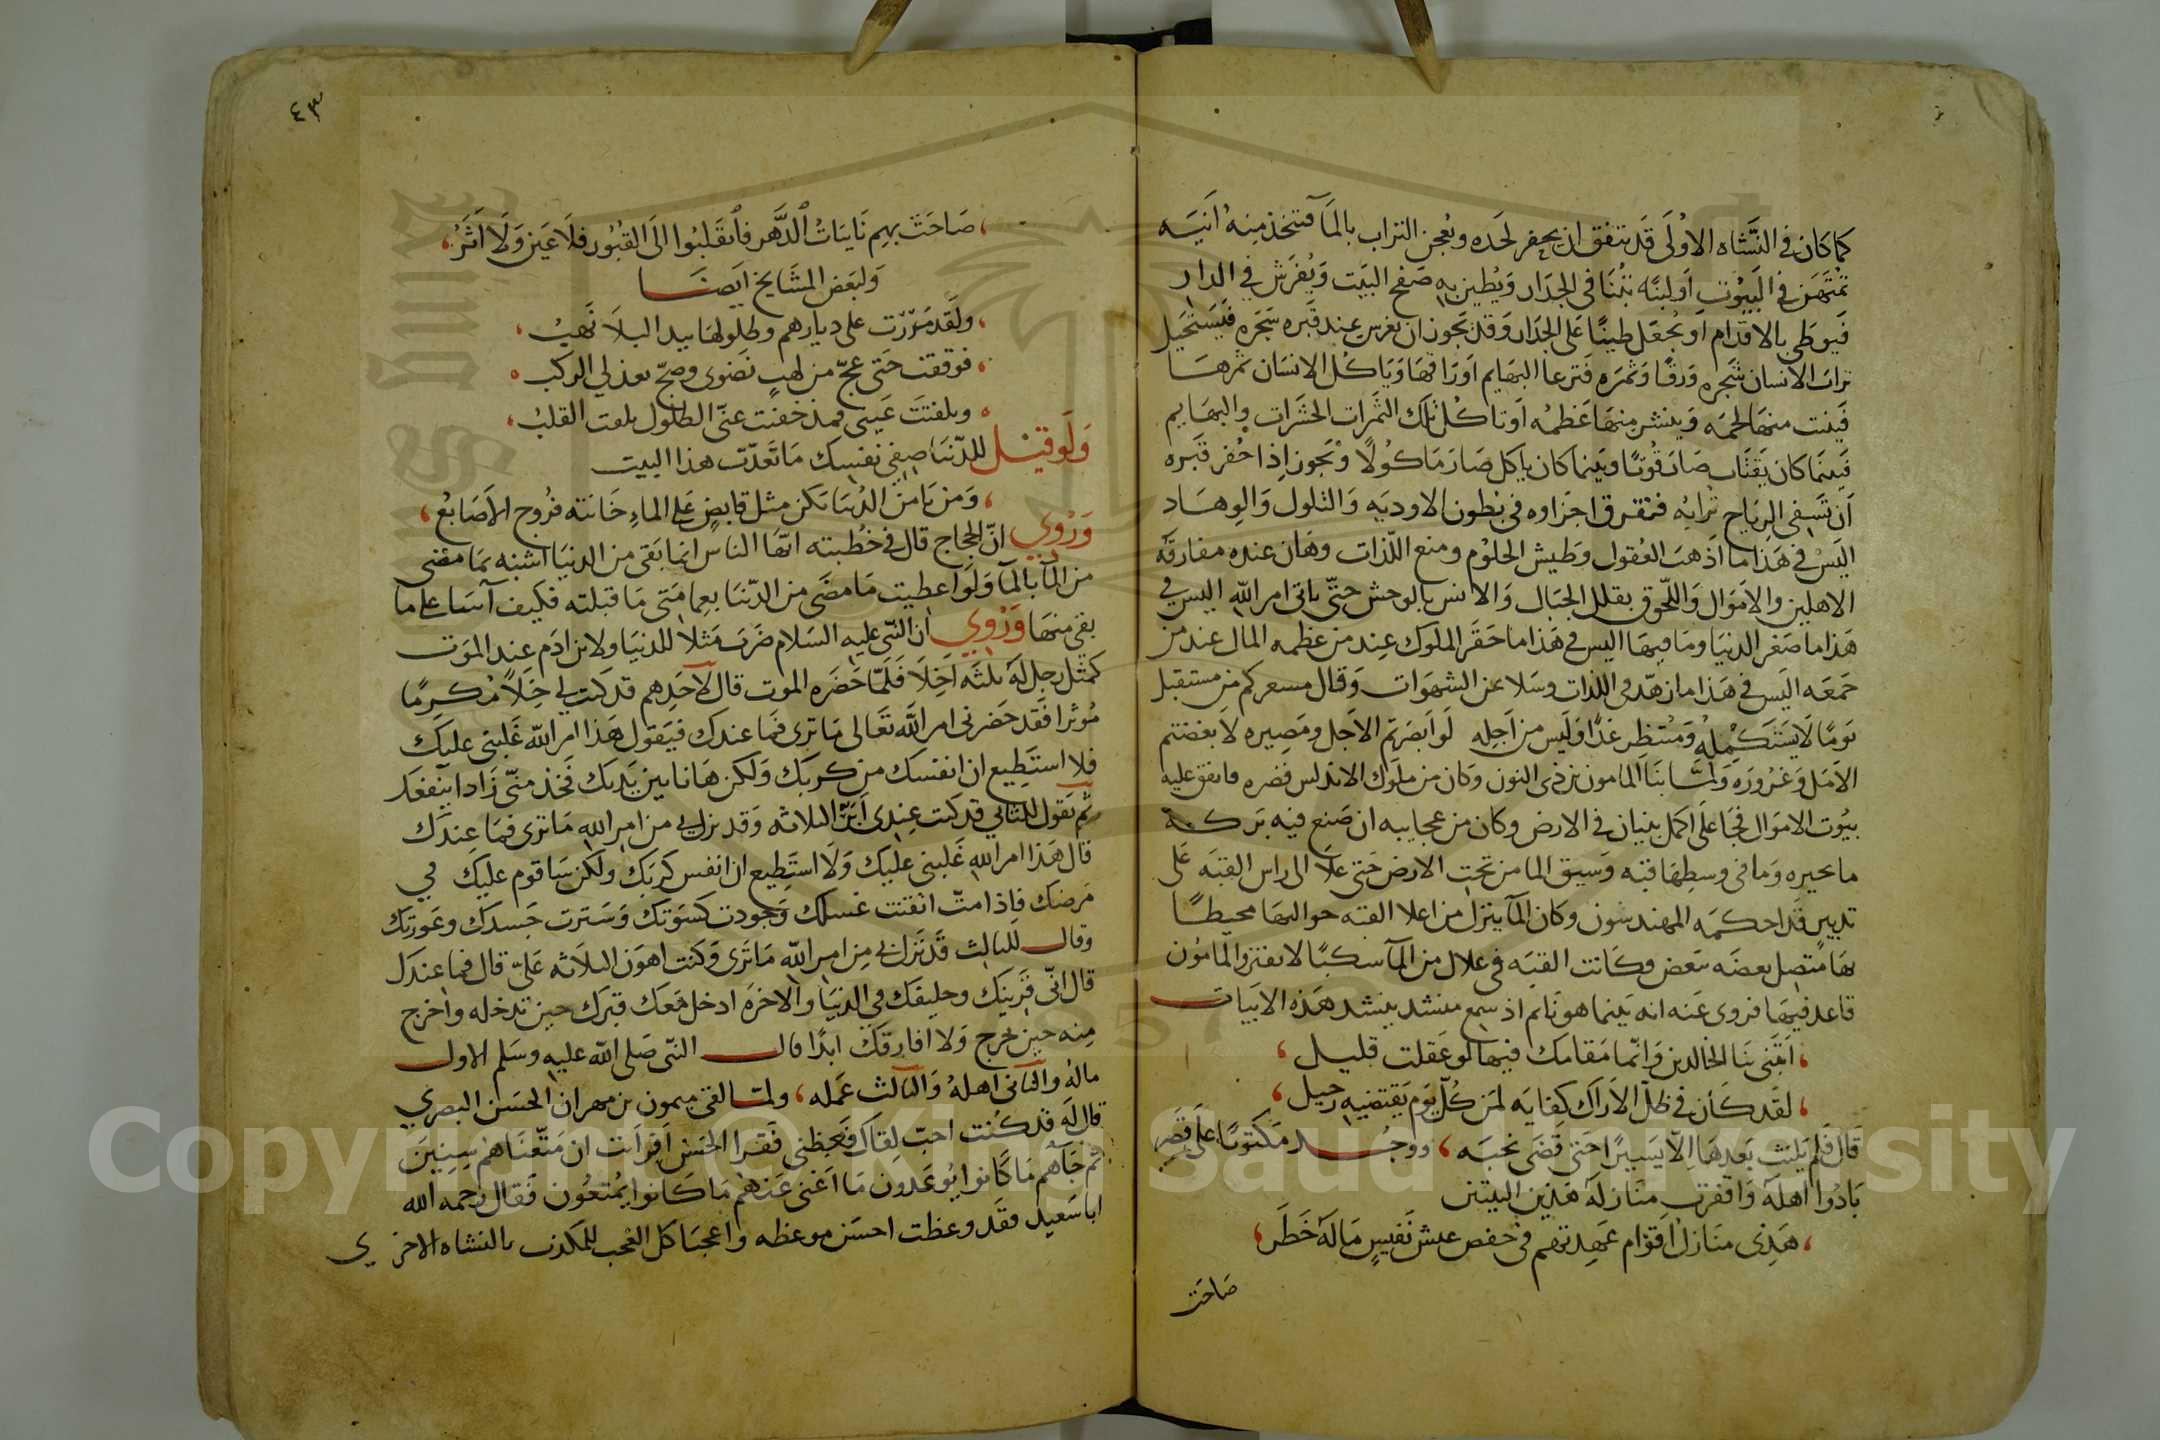 كما كان في النشاه الاولى قد يتفق ان يحفر لحده ويعجن التراب بالمآ فتتخذ منه انيه
تمتهن في البيوت او لبنه تبنا في الجدار ويطين به صفح البيت ويفرش في الدار
فيوطى بالاقدام او يجعل طينا على الجدار وقد يجوز ان يغرس عند قبره شجره فيستحيل
تراب الانسان شجره ورقا وثمره فترعا البهايم اوراقها وياكل الانسان ثمرها
فينبت منها لحمه وينشر منها عظمه او تاكل تلك الثمرات الحشرات والبهايم
فبينما كان يقتات صار قوتا وبينما كان ياكل صار ماكولا ويجوز اذا حفر قبره
ان تسفى الرياح ترابه فتتفرق اجزاوه في بطون الاوديه والتلول والوهاد
اليس في هذا ما اذهب العقول وطيش الحلوم ومنع اللذات وهان عنده مفارقه
الاهلين والاموال واللحوق بقلل الجبال والانس بالوحش حتى ياتى امر الله اليس في
هذا ما صغر الدنيا وما فيها اليس في هذا ما حقر الملوك عند من عظمه المال عند من
جمعه اليس في هذا ما زهد في اللذات وسلا عن الشهوات وقال مسعر كم من مستقبل
يوما لا يستكمله ومنتظر غدا وليس من اجله لو ابصرتم الاجل ومصيره لابغضتم
الامل وغروره ولما بنا المامون بن ذى النون وكان من ملوك الاندلس قصره وانفق عليه
بيوت الاموال فجا على اكمل بنيان في الارض وكان من عجايبه ان صنع فيه بركة
ما بحيره وما في وسطها قبه وسيق الما من تحت الارض حتى علا الى راس القبه على
تدبير قد احكمه المهندسون وكان المآ ينزل من اعلا القبه حواليها محيطا
بها متصل بعضه ببعض وكانت القبه في غلال من المآ سكبا لا يفتر والمامون
قاعد فيها فروى عنه انه بينما هو نايم اذ سمع منشد ينشد هذه الابيات
اتبنى بنا الخالدين وانما مقامك فيها لو عقلت قليل
لقد كان في ظل الاراك كفايه لمن كل يوم يقتضيه رحيل
قال فلم يلبث بعدها الا يسيرا حتى قضى نحبه ووجد مكتوبا على قصر
بادوا اهله واقفرت منازله هذين البيتين
هذى منازل اقوام عهدتهم في خفض عيش نفيس ما له خطر
صاحت
٤٣
صاحت بهم نايبات الدهر فانقلبوا الى القبور فلا عين ولا اثر
ولبعض المشايخ ايضا
ولقد مررت على ديارهم وطلولها بيد البلا نهب
فوقفت حتى عج من لهب نضوى وضج بعذلي الركب
وتلفتت عينى فمذ خفيت عنى الطلول تلفت القلب
ولو قيل للدنيا صفى نفسك ما تعدت هذا البيت
ومن يامن الدنيا يكن مثل قابض على الماء خانته فروج الاصابع
وروي ان الحجاج قال في خطبته ايها الناس انما بقى من الدنيا اشبه بما مضى
من المآ بالمآ ولو اعطيت ما مضى من الدنيا بعمامتى ما قبلته فكيف آسا على ما
بقى منها وروي ان النبى عليه السلام ضرب مثلا للدنيا ولابن ادم عند الموت
كمثل رجل له ثلثه اخلا فلما حضره الموت قال لاحدهم قد كنت لي خلا مكرما
موثرا فقد حضرنى امر الله تعالى ما ترى فما عندك فيقول هذا امر الله غلبنى عليك
فلا استطيع ان انفسك من كربك ولكن هانا بين يديك فخذ منى زادا ينفعك
ثم يقول للثاني قد كنت عندى ابر الثلاثه وقد نزل بي من امر الله ما ترى فما عندك
قال هذا امر الله غلبنى عليك ولا استطيع ان انفس كربك ولكن ساقوم عليك في
مرضك فاذا مت اتقنت غسلك وجودت كسوتك وسترت جسدك وعورتك
وقال للثالث قد نزل بي من امر الله ما ترى وكنت اهون الثلاثه على قال فما عندك
قال انى قرينك وحليفك في الدنيا والاخره ادخل معك قبرك حين تدخله واخرج
منه حين تخرج ولا افارقك ابدا قال النبى صلى الله عليه وسلم الاول
ماله والثانى اهله والثالث عمله ولما لقى ميمون بن مهران الحسن البصري
قال له قد كنت احب لقاك فعظنى فقرا الحسن افرأت ان متعناهم سنين
ثم جآهم ما كانوا يوعدون ما اغنى عنهم ما كانوا يمتعون فقال رحمه الله
ابا سعيد فقد وعظت احسن موعظه واعجبا كل العجب للمكذب بالنشاه الاخرى